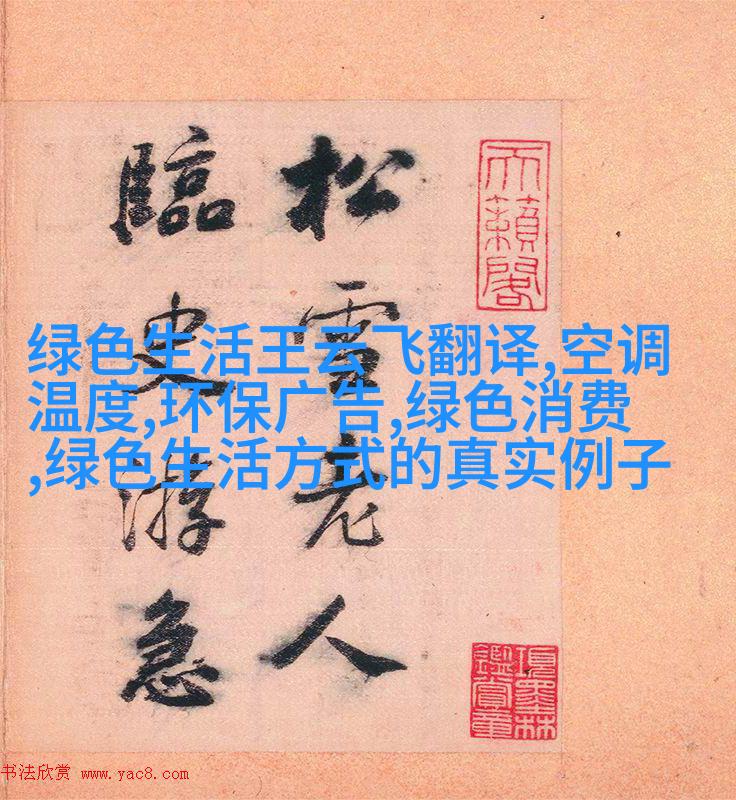 天籟閣
松雪老人
臨史游急
項墨林
鑑賞章
绿色生活王云飞翻译,空调
温度,环保广告,绿色消费
,绿色生活方式的真实例子
书法欣赏 www.yac8.com